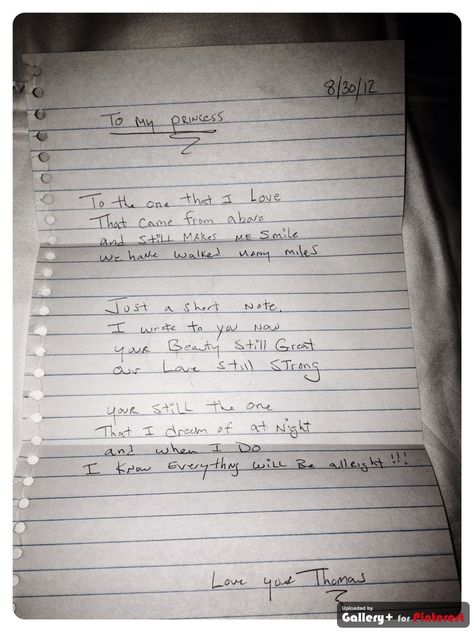 8/30/12
To my princess
To the one that I Love
That came from above
and Still Makes Me Smile
we have walked many miles
Just a short Note.
I wrote to you Now
your Beauty Still Great
our Love Still STrong
your Still the one
That I dream of at Night
and when I Do
I Know Everythng will Be allright!!!
Love your Thomas
Uploaded by
Gallery+ for Pinterest